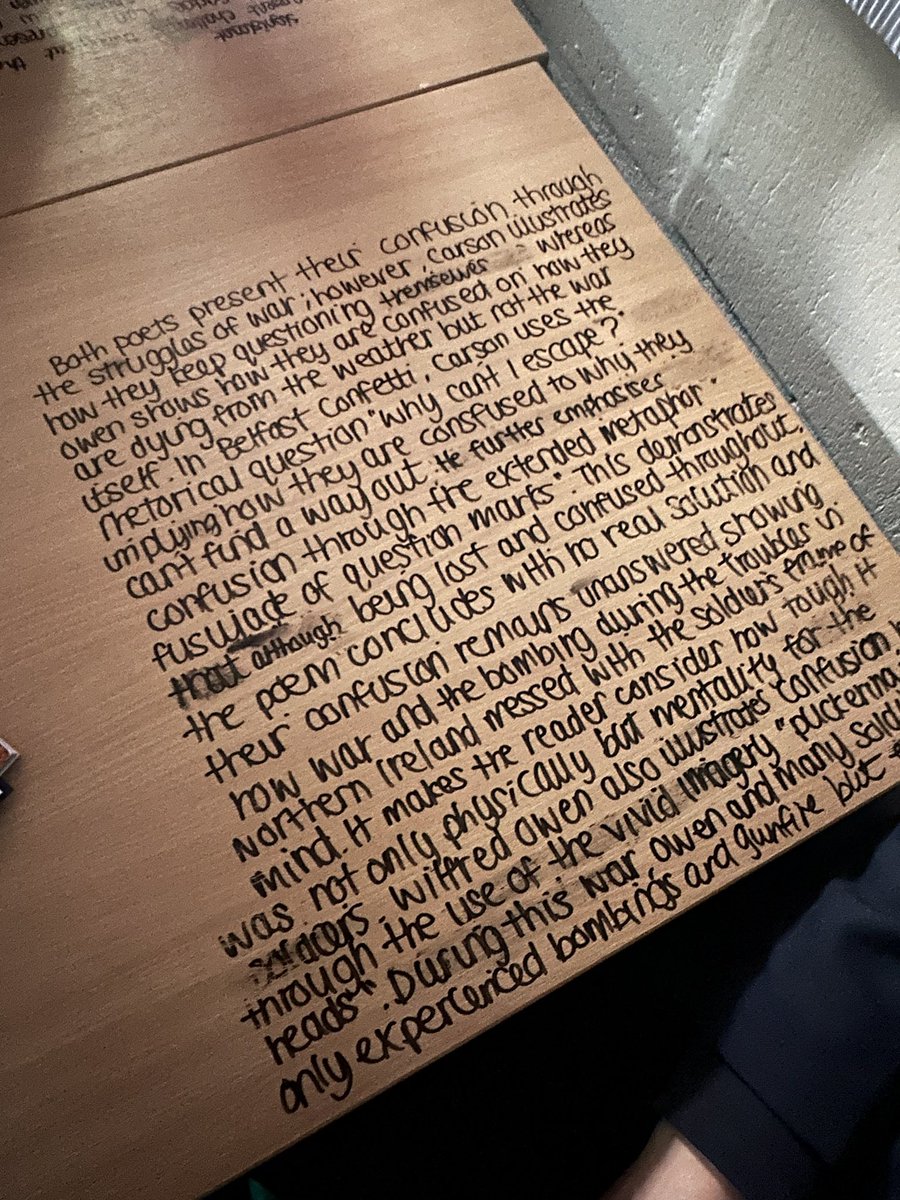 Both poets present their confusion through
the struggles of war; however, Carson illustrates
how they keep questioning themselves whereas
owen shows how they are confused on how they
are dying from the weather but not the war
itself. In 'Belfast Confetti', Carson uses the
rhetorical question "why can't I escape?"
implying how they are consfused to why they
can't find a way out. He further emphasises
confusion through the extended metaphor.
fusulade of question marks". This demonstrates
that although being lost and confused throughout,
the poem concludes with no real solution and
their confusion remains unanswered showing
how war and the bombing during the troubles in
Northern Ireland messed with the soldier's frame of
mind. It makes the reader consider how tough it
was not only physically but mentality for the
soldiers. Wilfred Owen also illustrates confusion
through the use of the vivid imagery "puckering
heads". During this war owen and many
only experienced bombings and gunfire but